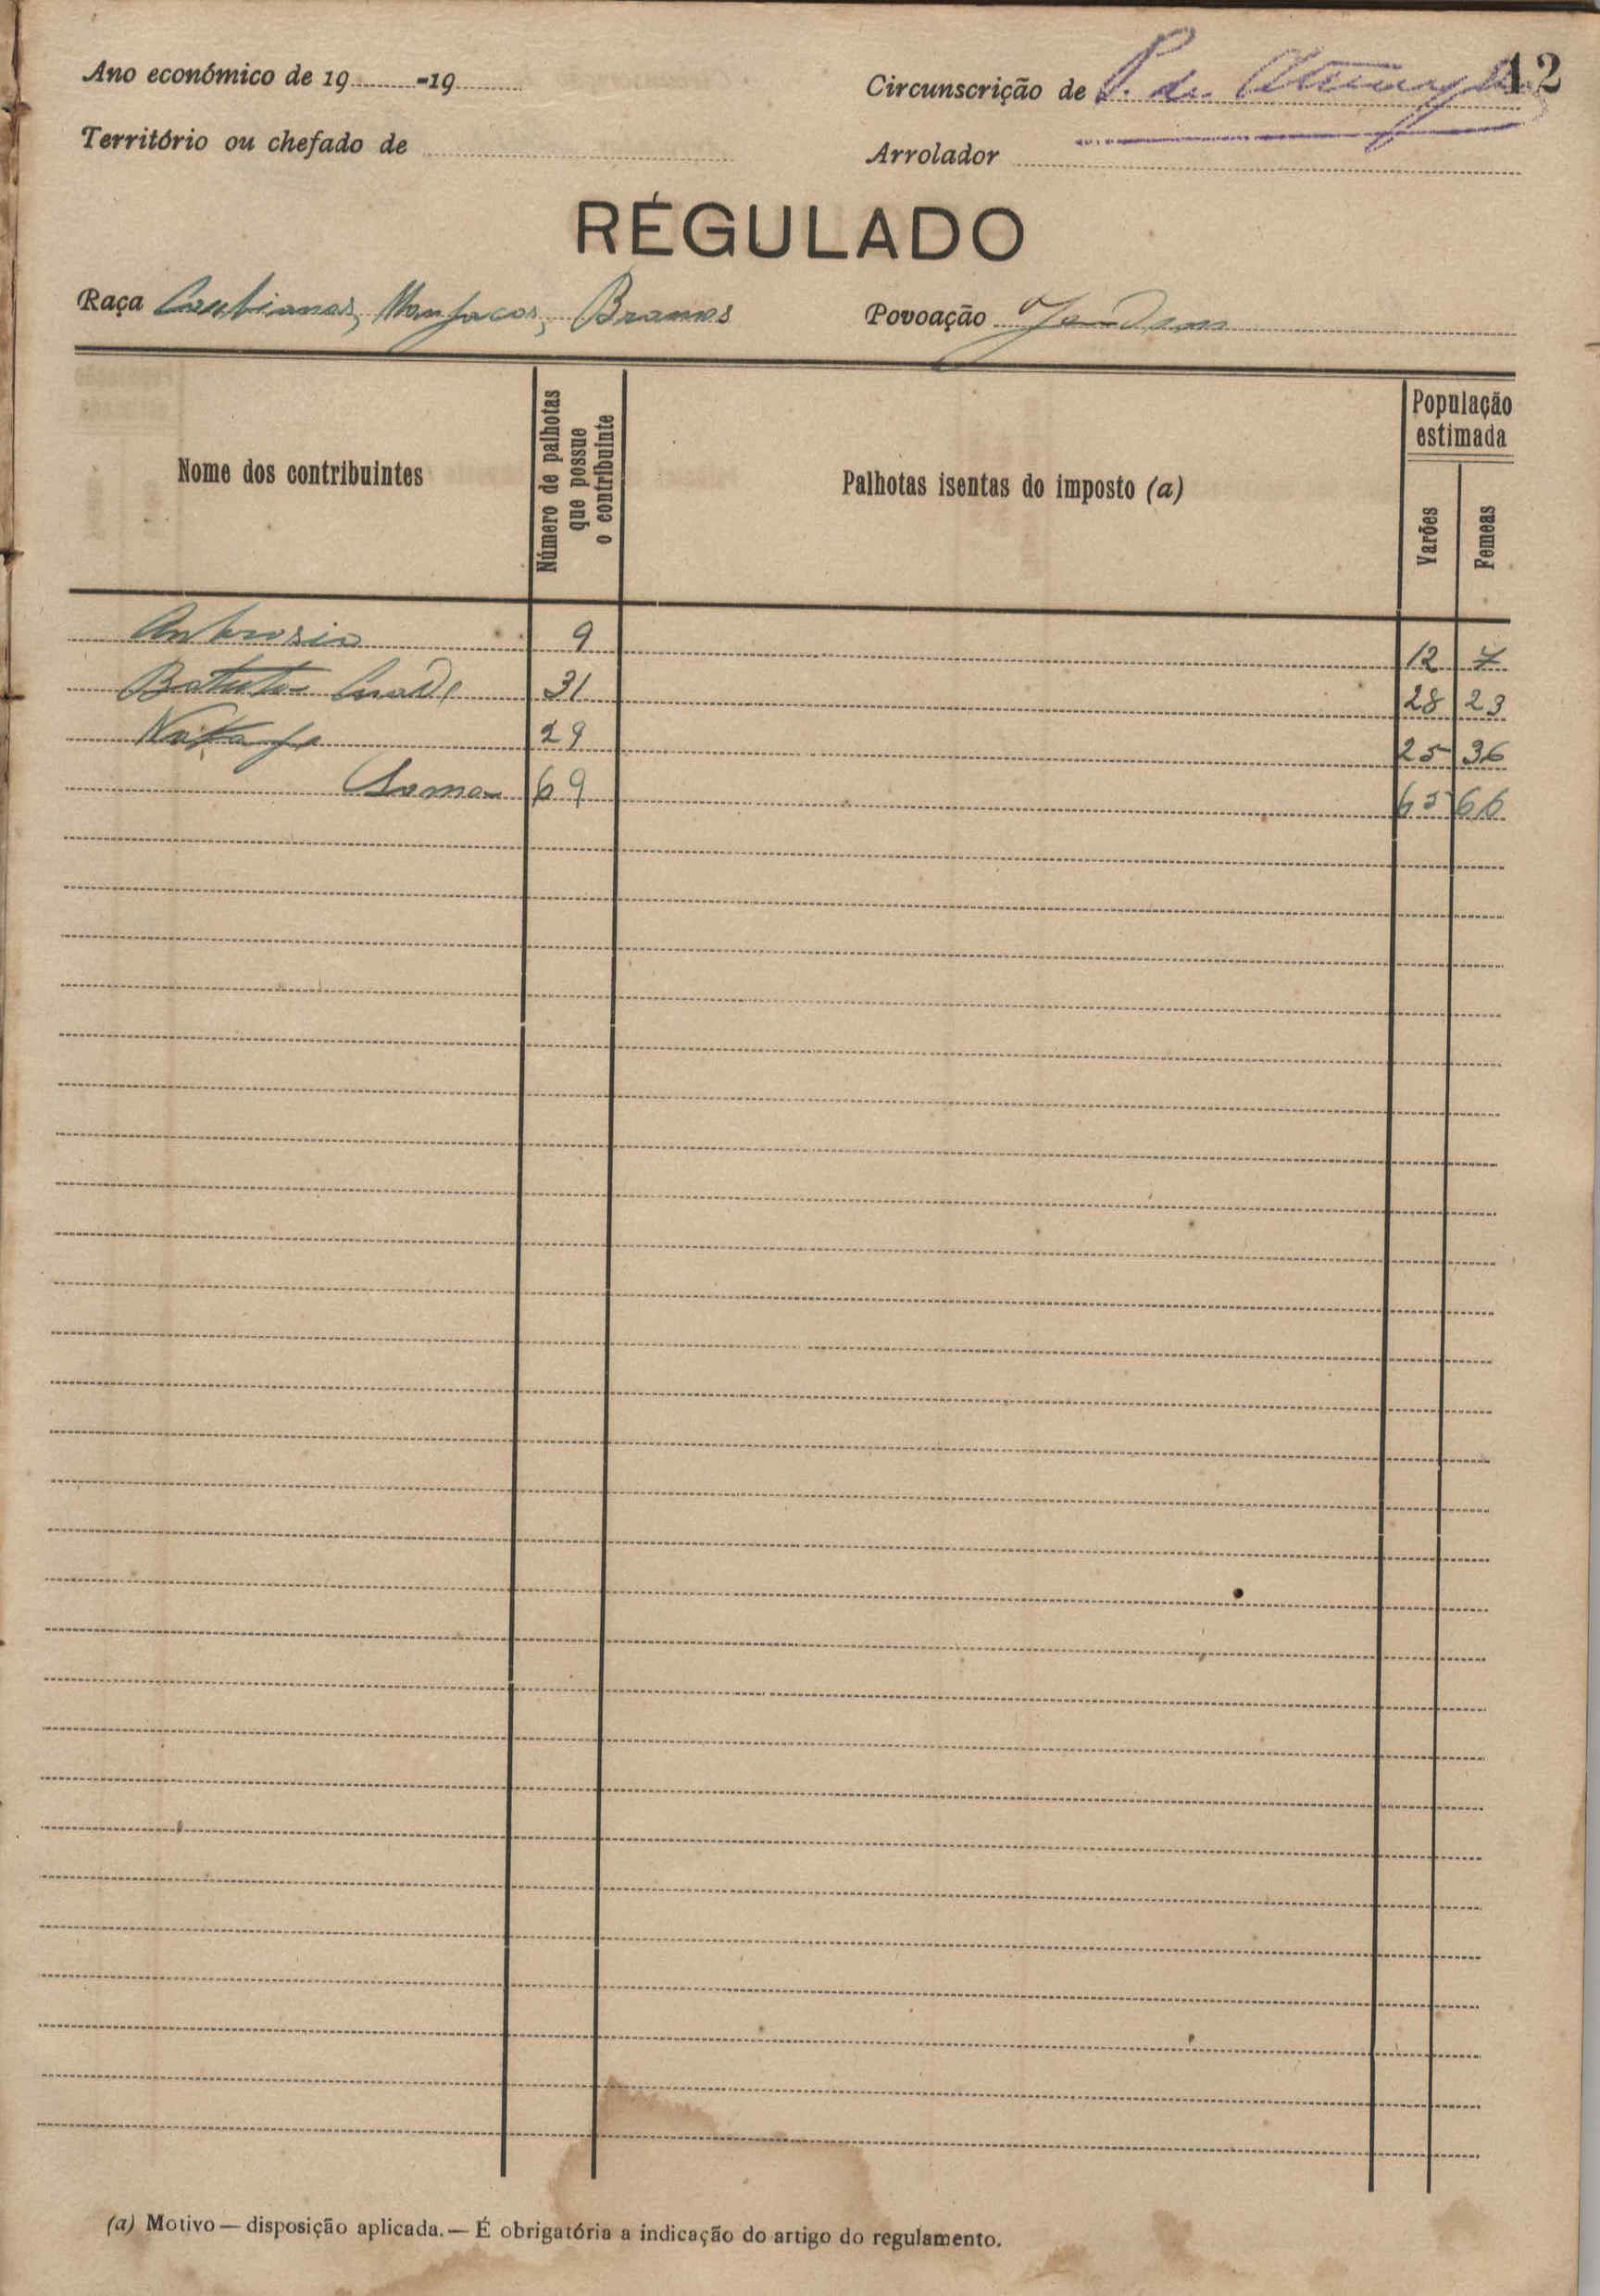 12
Ano económico de 19........-19........
Circunscrição de P. de
Território ou chefado de
Arrolador
RÉGULADO
Raça Manjacos, Brames
Povoação
Nome dos contribuintes
Número de palhotas que possue o contribuinte
Palhotas isentas do imposto (a)
População estimada
Varões
Femeas
Ambrosio 9 12 7
31 28 23
29 25 36
Soma 69 65 66
(a) Motivo — disposição aplicada. — É obrigatória a indicação do artigo do regulamento.